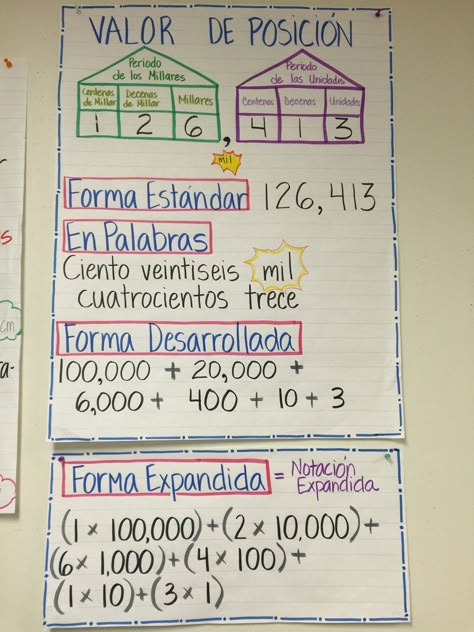 VALOR DE POSICIÓN
Periodo de los Millares
Periodo de las Unidades
Centenas de Millar
Decenas de Millar
Millares
Centenas
Decenas
Unidades
1 2 6 , 4 1 3
mil
Forma Estándar 126,413
En Palabras
Ciento veintiseis mil
cuatrocientos trece
Forma Desarrollada
100,000 + 20,000 +
6,000 + 400 + 10 + 3
Forma Expandida = Notación Expandida
(1 × 100,000) + (2 × 10,000) +
(6 × 1,000) + (4 × 100) +
(1 × 10) + (3 × 1)
cm